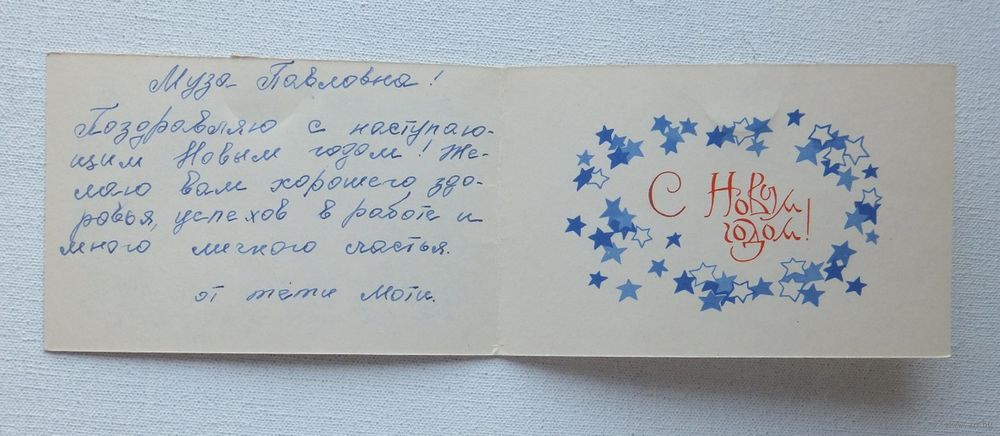 Муза Павловна!
Поздравляю с наступаю-
щим Новым годом! Же-
лаю вам хорошего здо-
ровья, успехов в работе и
много личного счастья.
от тёти Моти.
С Новым
годом!